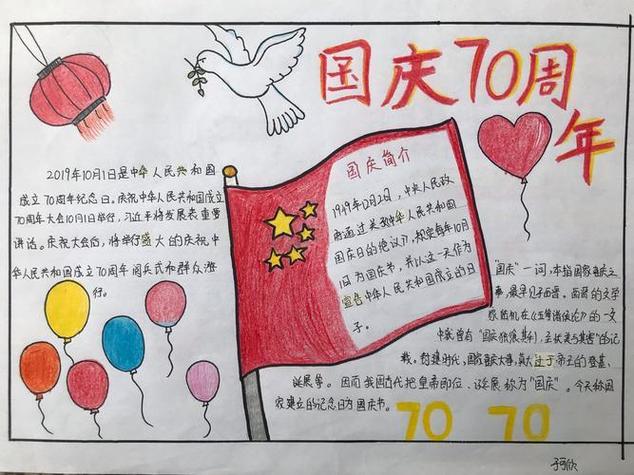 国庆70周年
2019年10月1日是中华人民共和国
成立70周年纪念日。庆祝中华人民共和国成立
70周年大会10月1日举行,习近平将发表重要
讲话。庆祝大会后,将举行盛大的庆祝中
华人民共和国成立70周年阅兵式和群众游
行。
国庆简介
1949年12月2日,中央人民政
府通过《关于中华人民共和国
国庆日的决议》,规定每年10月
1日为国庆节,并以这一天作为
宣告中华人民共和国成立的日
子。
"国庆"一词,本指国家喜庆之
事,最早见于西晋。西晋的文学
家陆机在《五等诸侯论》的一文
中就曾有"国庆独飨其利,主忧莫与其害"的记
载。封建时代,国家喜庆大事,莫大过于帝王的登基、
诞辰等。因而我国古代把皇帝即位、诞辰称为"国庆"。今天称国
家建立的纪念日为国庆节。
70 70